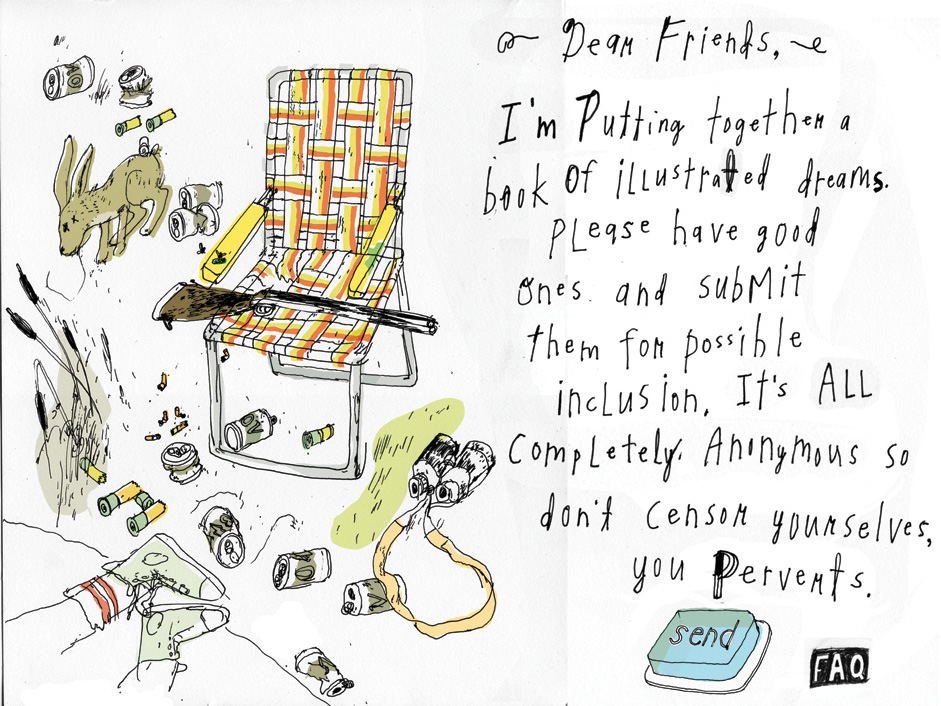 Dear Friends,
I'm Putting together a
book of illustrated dreams.
please have good
ones. and submit
them for possible
inclusion. It's ALL
completely. Anonymous so
don't censor yourselves,
you Perverts.
send
FAQ